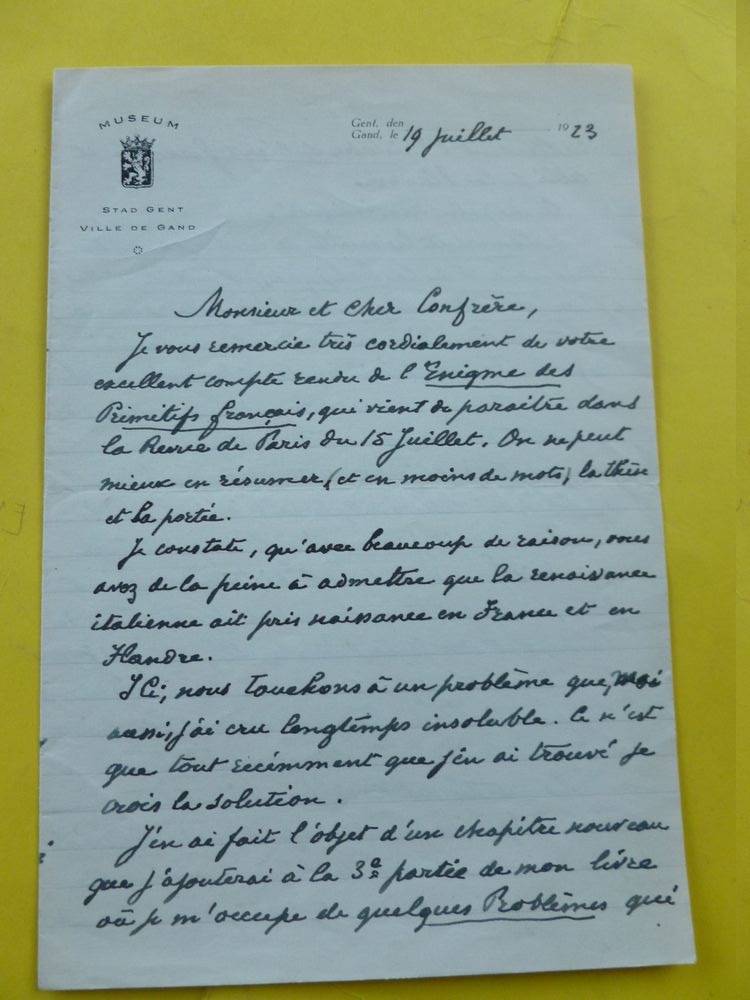 MUSEUM
STAD GENT
VILLE DE GAND
Gent, den
Gand, le 19 Juillet 1923
Monsieur et Cher Confrère,
Je vous remercie très cordialement de votre
excellent compte rendu de l'Enigme des
Primitifs français, qui vient de paraître dans
la Revue de Paris du 15 Juillet. On ne peut
mieux en résumer (et en moins de mots) la thèse
et la portée.
Je constate, qu'avec beaucoup de raison, vous
avez de la peine à admettre que la renaissance
italienne ait pris naissance en France et en
Flandre.
Ici, nous touchons à un problème que, moi
aussi, j'ai cru longtemps insoluble. Ce n'est
que tout récemment que j'en ai trouvé je
crois la solution.
J'en ai fait l'objet d'un chapitre nouveau
que j'ajouterai à la 3e partie de mon livre
où je m'occupe de quelques Problèmes qui